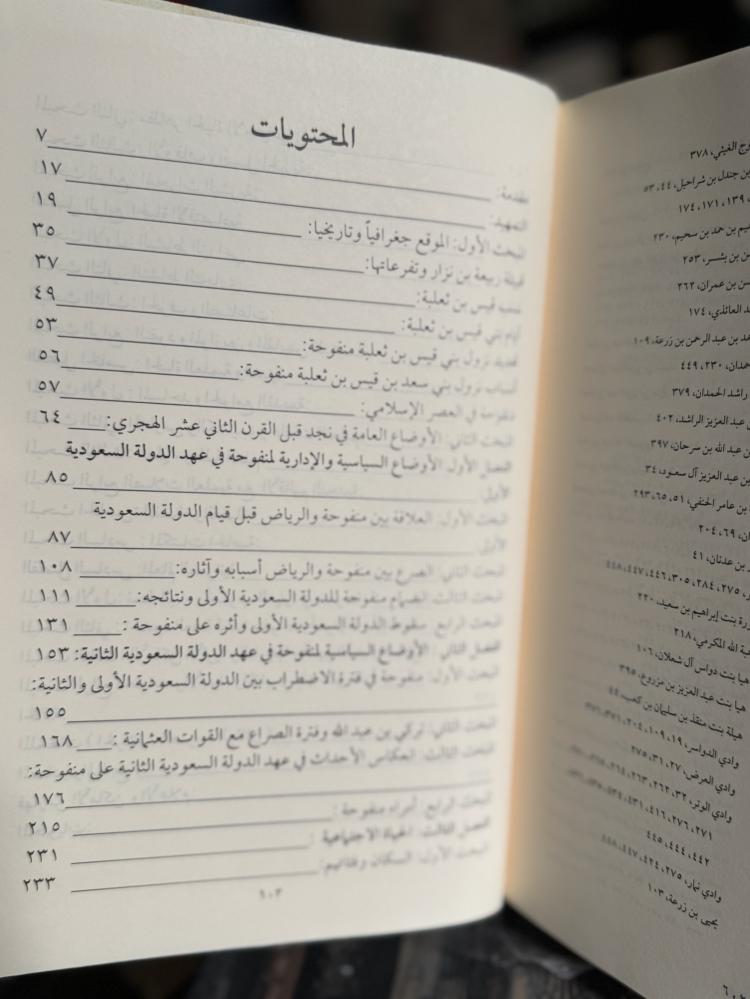 وج الغيثي، ٣٧٨
بن جندل بن شراحيل، ٤٤، ٥٣
١٣٩، ١٧١، ١٧٤
يم بن حمد بن سحيم، ٢٣٠
ن بن بشر، ٢٥٣
سن بن عمران، ٢٦٢
د العائذي، ١٧٤
مد بن عبد الرحمن بن زرعة، ١٠٩
حمدان، ٢٣٠، ٤٤٩
راشد الحمدان، ٣٧٩
عبد العزيز الراشد، ٤٠٢
ن عبد الله بن سرحان، ٣٩٧
بن عبد العزيز آل سعود، ٣٤
بن عامر الحنفي، ٥١، ٦٥، ٢٩٣
ن، ٦٩، ٢٠٤
بن عدنان، ٤١
٢٧٥، ٢٨٤، ٣٠٥، ٤٤٦، ٤٤٧، ٤٤٨
رة بنت إبراهيم بن سعيد، ٢٢٠
بة الله المكرمي، ٢١٨
هيا بنت دواس آل شعلان، ١٠٦
هيا بنت عبد العزيز بن مزروع، ٣٩٥
هيلة بنت منقذ بن سليمان بن كعب، ٤٤
وادي الدواسر، ١٩، ١٠٩، ٢٠٤، ٣٧١
وادي العرض، ٢٧، ٣١، ٢٧٥
وادي الوتر، ٣٢، ٢٦٢، ٢٦٣، ٢٦٤
٢٧١، ٢٧٦، ٤١٦، ٤٣١، ٤٣٤
٤٤٢، ٤٤٤، ٤٤٥
وادي نمار، ٢٧٥، ٤٢٤، ٤٤٧، ٤٤٨
يحيى بن زرعة، ١٠٣
المحتويات
مقدمة: ٧
التمهيد: ١٧
المبحث الأول: الموقع جغرافياً وتاريخيا: ١٩
قبيلة ربيعة بن نزار وتفرعاتها: ٣٥
نسب قيس بن ثعلبة: ٣٧
أيام بني قيس بن ثعلبة: ٤٩
تحديد نزول بني قيس بن ثعلبة منفوحة: ٥٣
أسباب نزول بني سعد بن قيس بن ثعلبة منفوحة: ٥٦
منفوحة في العصر الإسلامي: ٥٧
المبحث الثاني: الأوضاع العامة في نجد قبل القرن الثاني عشر الهجري: ٦٤
الفصل الأول الأوضاع السياسية والإدارية لمنفوحة في عهد الدولة السعودية
الأولى: ٨٥
المبحث الأول: العلاقة بين منفوحة والرياض قبل قيام الدولة السعودية
الأولى: ٨٧
المبحث الثاني: الصرع بين منفوحة والرياض أسبابه وآثاره: ١٠٨
المبحث الثالث: انضمام منفوحة للدولة السعودية الأولى ونتائجه: ١١١
المبحث الرابع: سقوط الدولة السعودية الأولى وأثره على منفوحة : ١٣١
الفصل الثاني: الأوضاع السياسية لمنفوحة في عهد الدولة السعودية الثانية: ١٥٣
المبحث الأول: منفوحة في فترة الاضطراب بين الدولة السعودية الأولى والثانية:
١٥٥
المبحث الثاني: تركي بن عبد الله وفترة الصراع مع القوات العثمانية : ١٦٨
المبحث الثالث: انعكاس الأحداث في عهد الدولة السعودية الثانية على منفوحة:
١٧٦
المبحث الرابع: أمراء منفوحة : ٢١٥
الفصل الثالث: الحياة الاجتماعية : ٢٣١
المبحث الأول: السكان وفئاتهم: ٢٣٣